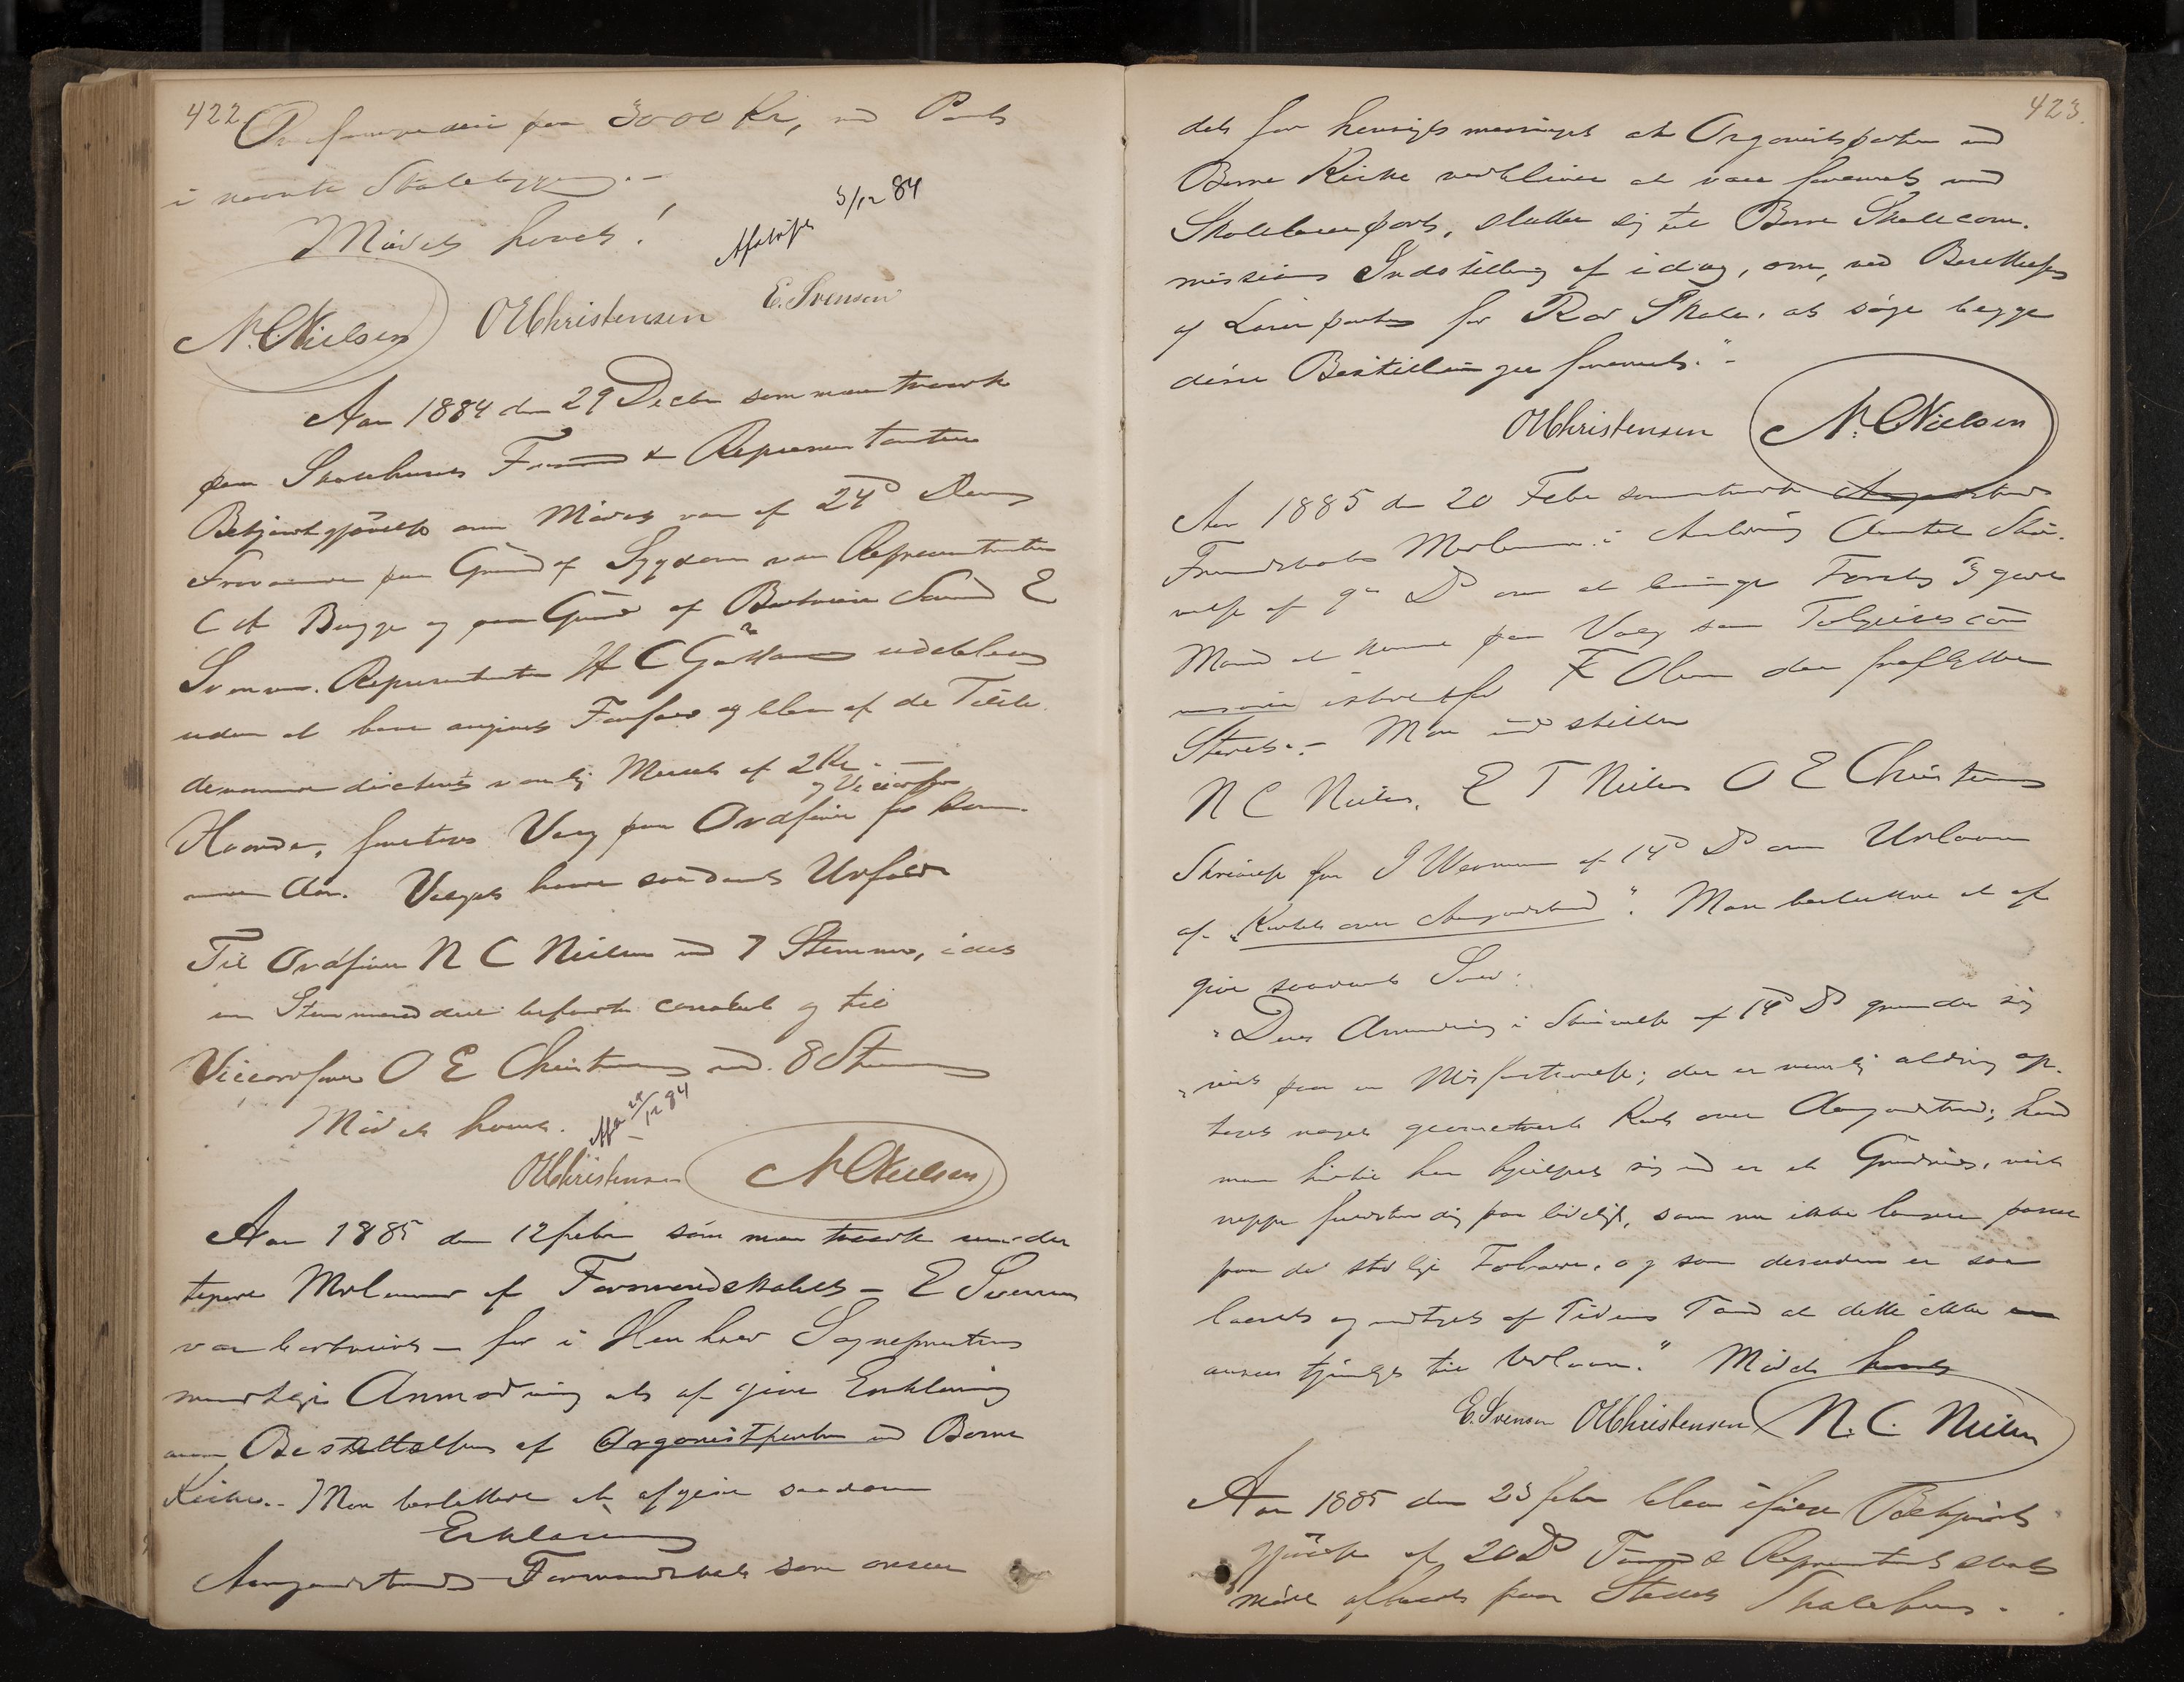 422
paa 3000 Kr, ved Pant
i
Mødet hævet!
Afskrift 3/12 84
N. C. Nielsen OEChristensen E. Svensen
Aar 1884 den 29 Decbr sammentraadte
paa Skolehuset Formd & Repræsentantern
Bekjendtgjørelse om Mødet var af 24d Dennes
Fraværende paa Grund af Sygdom var Repræsentanten
C A Bugge og paa Grund af Bortreise Formd E
Svensen. Repræsentanten H C udeblev
uden at have angivet Forfald og blev af de Tilste
deværende dicteret vanlig Mulct af 2 Kr. —
og Viceordfør
Hvorda, foretoges Valg paa Ordfører for kom-
mende Aar. Valget havde saadant Udfald
Til Ordfører N C Nielsen med 7 Stemmer, idet
en Stemmeseddel befandtes og til
Viceordfører O E Christensen med 8 Stemmer
Mødet hævet. 29/12 84
OEChristensen N. C. Nielsen
Aar 1885 den 12 febr sammentraadte unde
tegnede Medlemmer af Formandskabet — E Svensen
var bortreist — for i Henhold Sogneprestens
mundtlige Anmodning at afgive Erklæring
om Besættelsen af Organistposten ved Borre
Kirke. — Man besluttede at afgive saadan
Erklæring
Aasgaardstrands Formandskab som anseer
423.
det for hensigtsmæssigst at Organistposten ved
Borre Kirke vedbliver at være forenet med
Skolelærerpost, slutter sig til Borre Skolecom-
missions Indstilling af idag, om, ved Besættelsen
af Lærerposten for Rør Skole, at søge begge
disse Bestillinger forenet." —
OEChristensen N. C. Nielsen
Aar 1885 den 20 Febr sammentraadte
Formdskabets Medlemmer i Anledning Amtets Skri-
velse af 9de Ds om at bringe Forslag 3 gode
Mænd at komme paa Valg som Tolgviescom-
missær istedetfor F Olsen der fraflytter
Stedet. — Man indstiller
N C Nielsen, E T Nielsen O E Christensen
Skrivelse fra J W af 14d Ds om Udlaan
af "Kartet over Aasgaardstrand". Man besluttede at af
give saadant Svar:
"Deres Anmodning i Skrivelse af 14d Ds grunder sig
vist paa en Misforstaaelse; der er nemlig aldrig op-
taget noget geometrisk Kart over Aasgaardstrand; hvad
man hidtil har hjulpet sig med er et Grundrids, vist
neppe fuldstændig paalideligt, som nu ikke længere passer
paa de stedlige Forhold, og som desuden er saa
læderet og medtaget af Tidens Tand at dette ikke
ansees tjenligt til Udlaan." Mødet hævet
E. Svensen OEChristensen N. C. Nielsen
Aar 1885 den 23 febr blev ifølge Bekjendt
gjørelse af 20 Ds Formd & Repræsentantskabs
møde afholdt paa Stedets Skolehus.